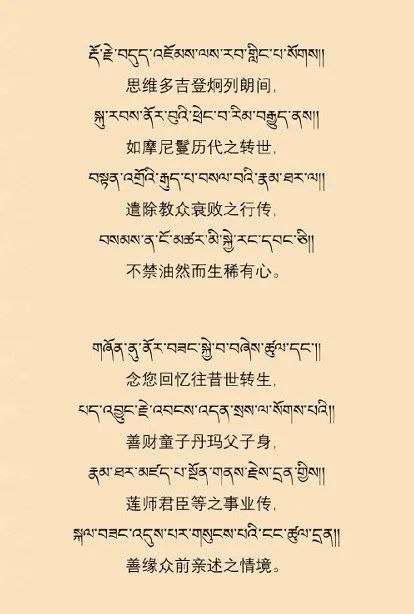 རྡོ་རྗེ་བདུད་འཇོམས་ལས་རབ་གླིང་པ་སོགས།།
思维多吉登炯列朗间，
སྐུ་རབས་ནོར་བུའི་ཕྲེང་བ་རིམ་བརྒྱུད་ནས།།
如摩尼鬘历代之转世，
བསྟན་འགྲོའི་རྒུད་པ་བསལ་བའི་རྣམ་ཐར་ལ།།
遣除教众衰败之行传，
བསམས་ན་ངོ་མཚར་མི་སྐྱེ་རང་དབང་ཅི།།
不禁油然而生稀有心。
གཞོན་ནུ་ནོར་བཟང་སྐྱེ་བ་བཞེས་ཚུལ་དང་།།
念您回忆往昔世转生，
པད་འབྱུང་རྗེ་འབངས་འདན་སྲས་ལ་སོགས་པའི།།
善财童子丹玛父子身，
རྣམ་ཐར་མཛད་པ་སྔོན་གནས་རྗེས་དྲན་གྱིས།།
莲师君臣等之事业传，
སྐལ་བཟང་འདུས་པར་གསུངས་པའི་ངང་ཚུལ་དྲན།།
善缘众前亲述之情境。